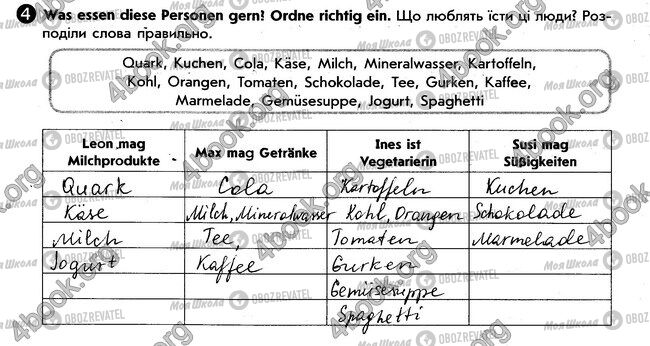 4 Was essen diese Personen gern? Ordne richtig ein. Що люблять їсти ці люди? Роз-
поділи слова правильно.
Quark, Kuchen, Cola, Käse, Milch, Mineralwasser, Kartoffeln,
Kohl, Orangen, Tomaten, Schokolade, Tee, Gurken, Kaffee,
Marmelade, Gemüsesuppe, Jogurt, Spaghetti
Leon mag Milchprodukte | Max mag Getränke | Ines ist Vegetarierin | Susi mag Süßigkeiten
Quark | Cola | Kartoffeln | Kuchen
Käse | Milch, Mineralwasser | Kohl, Orangen | Schokolade
Milch | Tee, | Tomaten | Marmelade
Jogurt | Kaffee | Gurken
Gemüsesuppe
Spaghetti
4book.org
Моя Школа
OBOZREVATEL